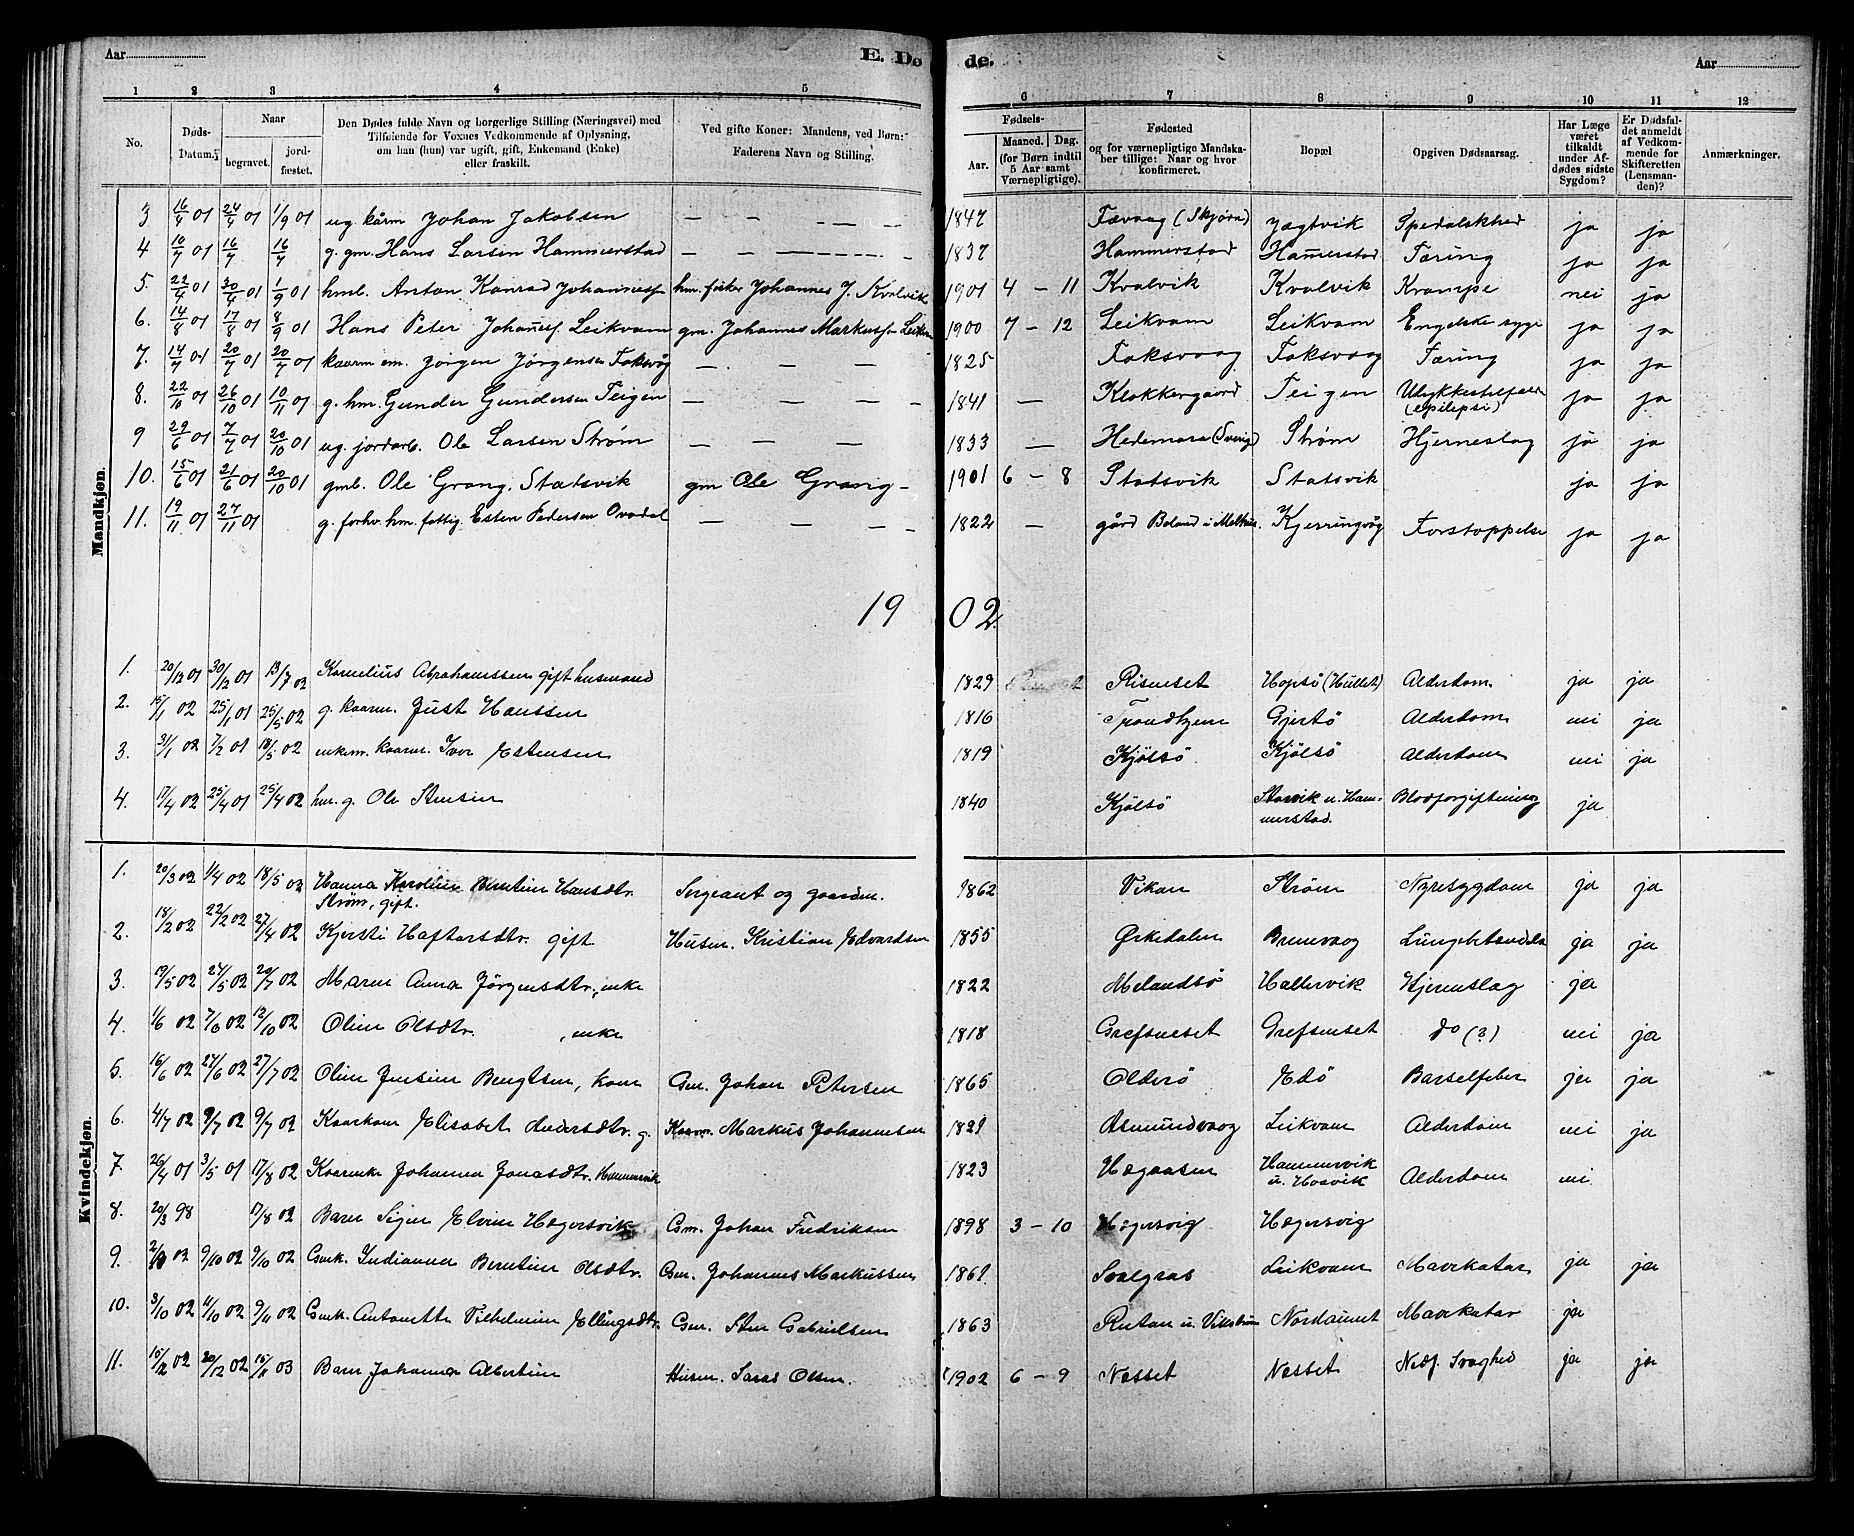 Aar
E. Dø
de.
Aar
1 2 3 4 5 6 7 8 9 10 11 12
No.
Døds-
Datum.
Naar
begravet.
jord-
fæstet.
Den Dødes fulde Navn og borgerlige Stilling (Næringsvei) med
Tilføiende for Voxnes Vedkommende af Oplysning,
om han (hun) var ugift, gift, Enkemand (Enke)
eller fraskilt.
Ved gifte Koner: Mandens, ved Børn:
Faderens Navn og Stilling.
Fødsels-
Aar.
Maaned. Dag.
(for Børn indtil
5 Aar samt
Værnepligtige).
Fødested
og for værnepligtige Mandska-
ber tillige: Naar og hvor
konfirmeret.
Bopæl
Opgiven Dødsaarsag.
Har Læge
været
tilkaldt
under Af-
dødes sidste
Sygdom?
Er Dødsfal-
det anmeldt
af Vedkom-
mende for
Skifteretten
(Lensman-
den)?
Anmærkninger.
Mandkjøn.
3 16/4 01 24/4 01 1/9 01 ug kårm Johan Jakobsen — — — — 1847 Tævaag (Skjørn) Jægtvik Spedalskhed ja ja
4 10/7 01 16/7 16/7 g. gm. Hans Larsen Hammerstad — — — 1837 Hammerstad Hamerstad Tæring ja ja
5. 22/4 01 30/4 01 1/9 01 hmb. Anton Konrad Johannesf hm. fisker Johannes J. Kvalvik 1901 4 — 11 Kvalvik Kvalvik Krampe nei ja
6. 14/8 01 17/8 01 8/9 01 Hans Peter Johanesf Leikvam gm. Johannes Markusson Leikv 1900 7 — 12 Leikvam Leikvam Engelske syge ja ja
7. 14/7 01 20/7 01 20/7 01 kaarm em. Jørgen Jørgensen Foksvåg — — — 1825 Foksvaag Foksvaag Tæring ja ja
8. 22/10 01 26/10 01 10/11 01 g. hm. Gunder Gundersen Teigen — — — — 1841 — Klokkergaard Teigen Ulykkestilfælde
(epilepsi) ja ja
9 29/6 01 7/7 01 20/10 01 ug. jordarb. Ole Larsen Strøm — — — 1833 — Hedemora (Sverig) Strøm Hjerneslag ja ja
10. 15/6 01 21/6 01 20/10 01 gmb. Ole Grang. Statsvik gm Ole Grang — 1901 6 — 8 Statsvik Statsvik ja ja
11. 19/11 01 27/11 01 g. forhv. hm. fattig. Esten Pedersen Ovadal — — — — 1822 — gård Boland i Melhus Kjerringvåg Forstoppelse ja ja
1902.
1. 20/12 01 30/12 01 13/7 02 Kornelius Abrahamssen gift husmand 1829 Risneset Hopsø (Hullet) Alderdom ja ja
2. 15/1 02 25/1 01 25/5 02 g. kaarm. Just Hanssen 1816 Trondhjem Gjertø Alderdom nei ja
3. 31/1 02 7/2 01 18/5 02 enkem. kaarm. Iver Estensen 1819 Kjølsø Kjølsø Alderdom nei ja
4. 17/4 02 25/4 01 25/4 02 hm. g. Ole Stensen 1840 Kjølsø Storvik u. Ham-
merstad. Blodforgiftning ja
Kvindekjøn.
1. 20/3 02 1/4 02 18/5 02 Hanna Karoline Berntine Hansdtr.
Strøm, gift. Sergeant og gaardm. 1862 Vikan Strøm Nyresygdom ja ja
2. 18/2 02 22/2 02 27/4 02 Kjersti Haftorsdtr. gift Husm. Kristian Edvardsen 1855 Ørkedalen Bremvaag Lungebetændels ja ja
3. 19/5 02 24/5 02 20/7 02 Maren Anna Jørgensdtr., enke 1822 Melandsø Hallervik Hjerneslag ja
4. 1/6 02 7/6 02 12/10 02 Oline Olsdtr. , enke 1818 Grefsneset Grefsneset do (?) nei ja
5. 16/6 02 24/6 02 27/7 02 Oline Jensine Bengtsen, kone Gm. Johan Petersen 1865 Olderø Edø Barselfeber ja ja
6. 4/7 02 9/7 02 9/7 02 Kaarkone Elisabet Andersdtr. g. Kaarm. Markus Johannesen 1821 Asmundvaag Leikvam Alderdom nei ja
7. 26/4 01 3/5 01 17/8 02 Kaarenke Johanna Jonasdtr. Hammervik 1823 Hægaasen Hammervik
u. Hoavik Alderdom nei
8. 20/3 98 17/8 02 Barn Signe Elvine Hægersvik Gm. Johan Fredriksen 1898 3 — 10 Hægersvig Hægersvig
9. 02 9/10 02 9/10 02 Gmk. Indianna Berntine Olsdtr. Gm. Johannes Markussen 1861 Svalgras Leikvam Mavekatar ja ja
10. 3/10 02 11/10 02 9/11 02 Gmk. Antonette Vilhelmine Ellingsdtr. Gm. Sten Gabrielsen 1863 Nordanset Mavekatar ja
11. 15/12 02 20/12 02 03 Barn Johanna Albertine Husm. Olsen. 1902 6 — 9 Nesset Nesset Medf. Svaghed ja ja